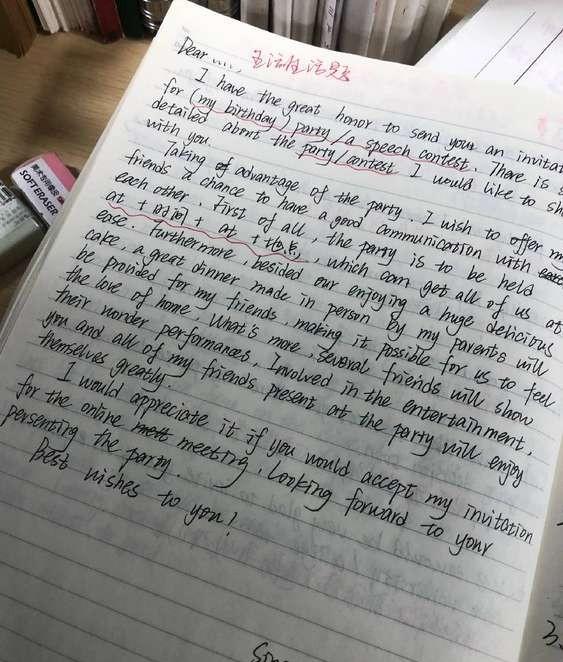 Dear....,
I have the great honor to send you an invitat
for (my birthday) party / a speech contest. There is
detailed about the party/contest I would like to sh
with you.
Taking of advantage of the party, I wish to offer m
friends a chance to have a good communication with
each other. First of all, the party is to be held
at + 时间 + at + 地点, which can get all of us at
ease. Furthermore, besided our enjoying a huge delicious
cake, a great dinner made in person by my parents will
be provided for my friends, making it possible for us to feel
the love of home. What's more, several friends will show
their wonder performances. Involved in the entertainment,
you and all of my friends present at the party will enjoy
themselves greatly.
I would appreciate it if you would accept my invitation
for the online meeting. Looking forward to your
persenting the party.
Best wishes to you!
SOFT ERASER